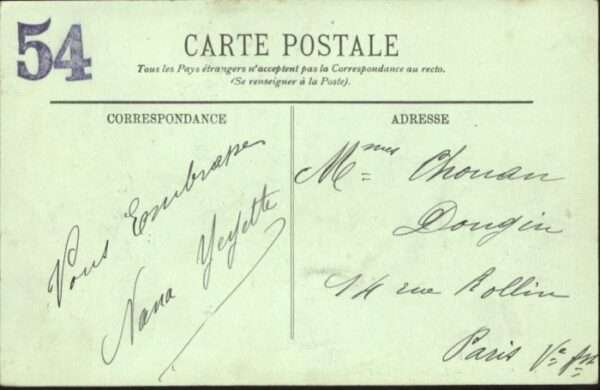 54
CARTE POSTALE
Tous les Pays étrangers n'acceptent pas la Correspondance au recto.
(Se renseigner à la Poste).
CORRESPONDANCE
ADRESSE
Vous Embrasse
Nana Yeyette
Mmes Chouan
Dougin
14 rue Rollin
Paris Ve